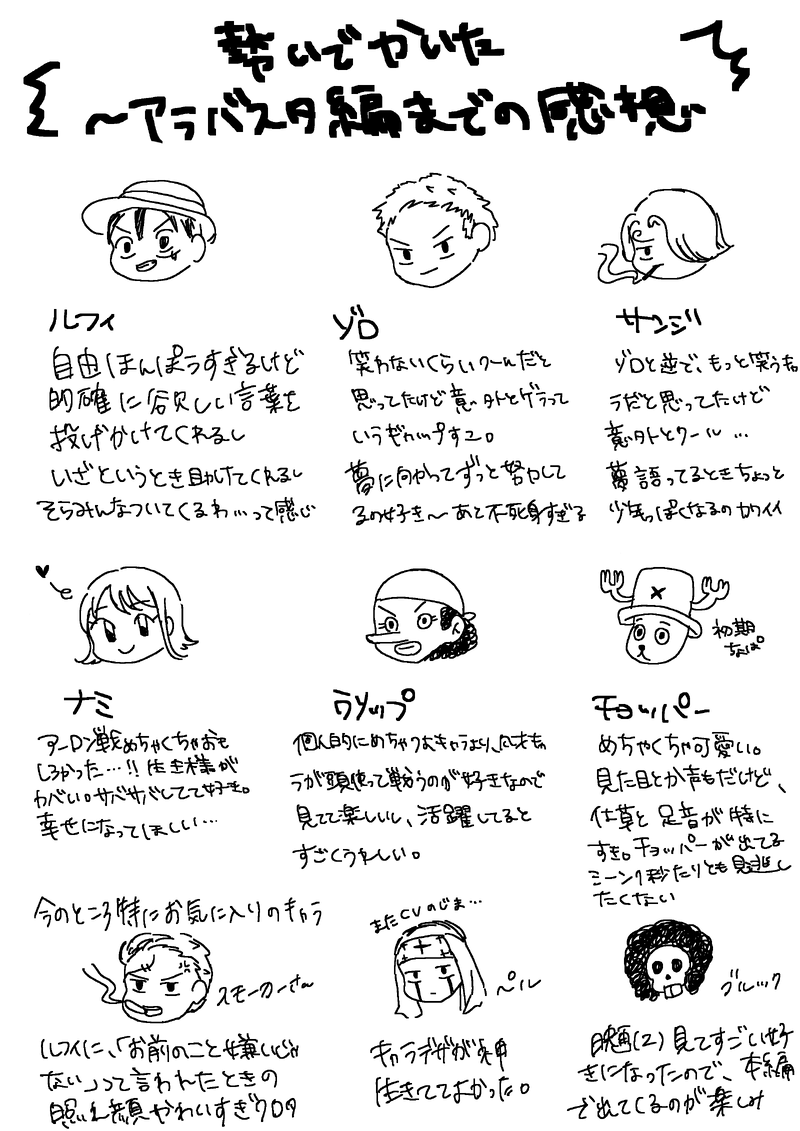 勢いでかいた
～アラバスタ編までの感想
ルフィ
自由ほんぽうすぎるけど
的確に欲しい言葉を
投げかけてくれるし
いざというとき助けてくれるし
そらみんなついてくるわ…って感じ
ゾロ
笑わないくらいクールだと
思ってたけど意外とゲラって
いうギャップすこ。
夢に向かってずっと努力して
るの好き～あと不死身すぎる
サンジ
ゾロと逆で、もっと笑うも
うだと思ってたけど
意外とクール…
夢語ってるときちょっと
少年っぽくなるのカワイイ
ナミ
アーロン戦めちゃくちゃおも
しろかった…!!生き様が
カバいい。サバサバしてて好き。
幸せになってほしい…
ウソップ
個人的にめちゃつおキャラより、凡才も
うが頭使って戦うのが好きなので
見てて楽しいし、活躍してると
すごくうれしい。
チョッパー
初期
ちょぱ
めちゃくちゃ可愛い。
見た目とか声もだけど、
仕草と足音が特に
すき。チョッパーが出てる
シーン1秒たりとも見逃し
たくない
今のところ特にお気に入りのキャラ
スモーカーさん
ルフィに、「お前のこと嫌いじゃ
ない」って言われたときの
照れ顔かわいすぎクロタ
またCVのじま…
ペル
キャラデザが神
生きててよかった。
ブルック
映画(Z)見てすごい好
きになったので、本編
で出てくるのが楽しみ